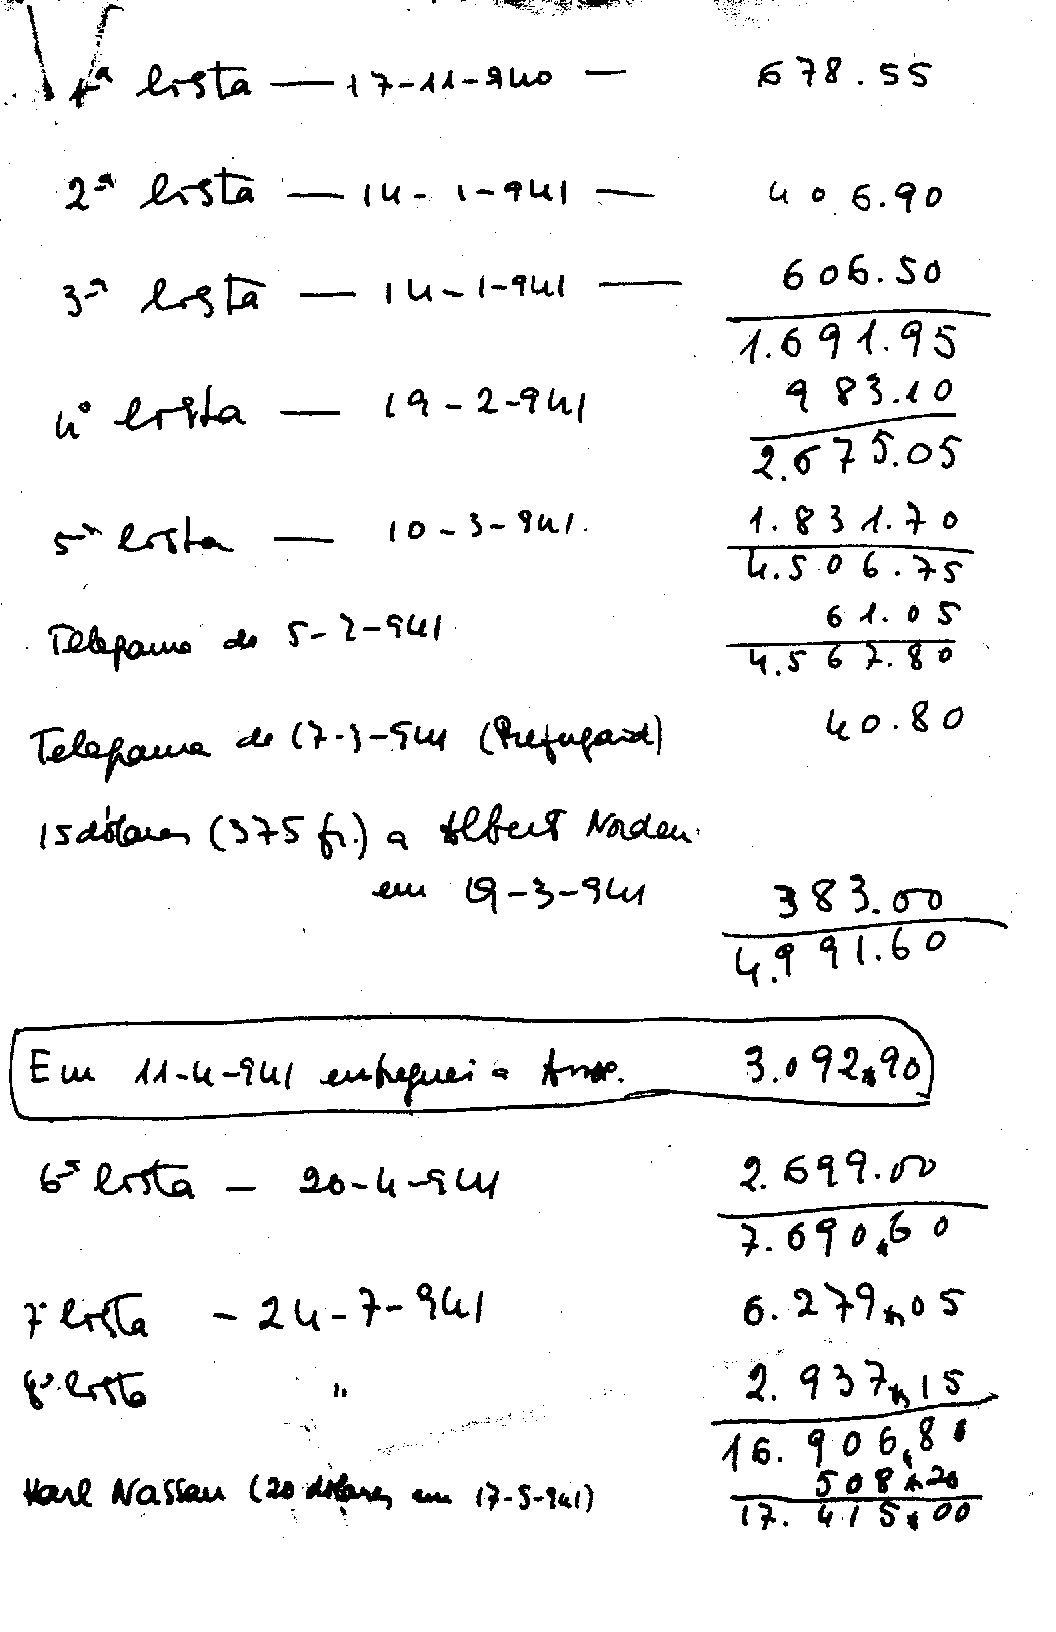 1ª lista — 17-11-940 — 678.55
2ª lista — 14-1-941 — 406.90
3ª lista — 14-1-941 — 606.50
1.691.95
4ª lista — 19-2-941 983.10
2.675.05
5ª lista — 10-3-941. 1.831.70
4.506.75
Telegrama de 5-2-941 61.05
4.567.80
Telegrama de 17-3-941 ( 40.80
15 dólares (375 fr.) a Albert Norden
em 19-3-941 383.00
4.991.60
Em 11-4-941 entreguei a 3.092,90
6ª lista — 20-4-941 2.699.00
7.690,60
7ª lista - 24-7-941 6.279,05
8ª lista " 2.937,15
16.906,80
Karl Nassau (20 dólares em 17-5-941) 508,20
17.415,00